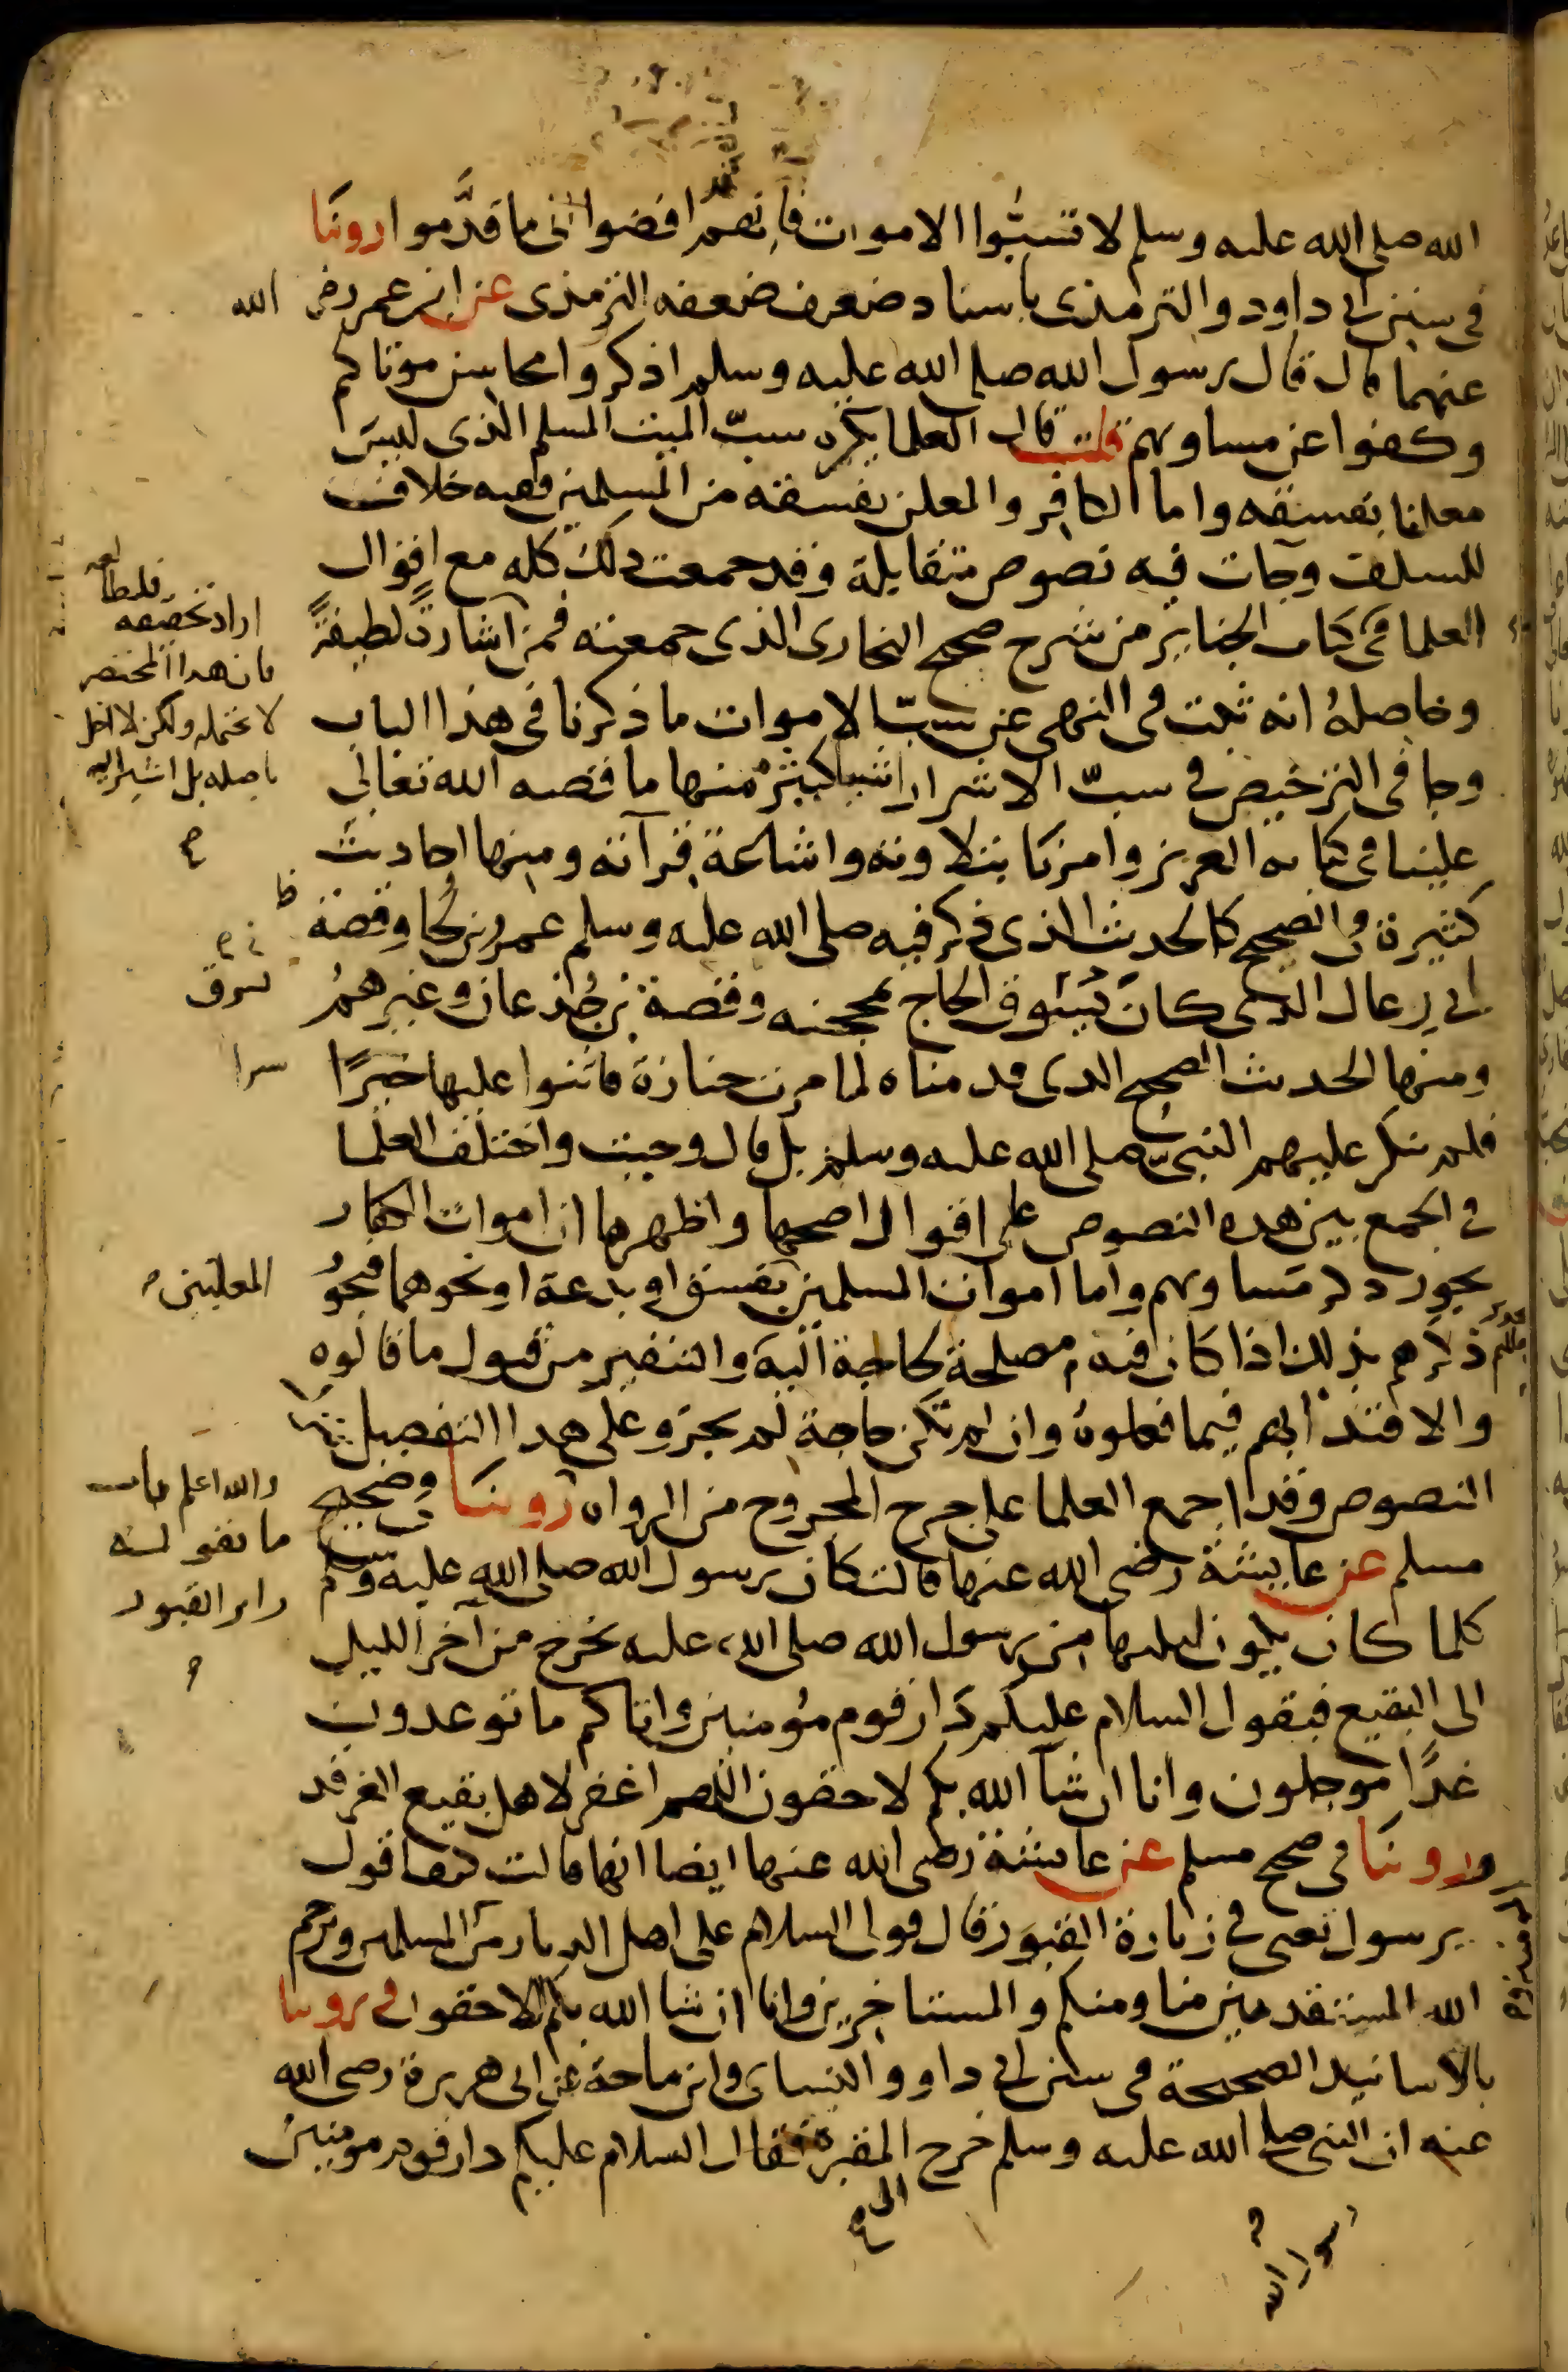 الله صلى الله عليه وسلم لا تسبُّوا الاموات فانهم قد افضوا الى ما قدَّموا روينا
في سنن ابى داود والترمذى باسناد ضعيف ضعفه الترمذى عن ابن عمر رضى الله
عنهما قال قال رسول الله صلى الله عليه وسلم اذكروا محاسن موتاكم
وكفوا عن مساويهم قلت قال العلما يكره سبّ الميت المسلم الذى ليس
معلنا بفسقه واما الكافر والمعلن بفسقه من المسلمين ففيه خلاف
للسلف وجات فيه نصوص متقابلة وقد جمعت ذلك كله مع اقوال
العلما فى كتاب الجنايز من شرح صحيح البخارى الذى جمعته فمن
وحاصلهُ انه ثبت فى النهى عن سبّ الاموات ما ذكرنا في هذا الباب
وجا فى الترخيص في سبّ الاشرار اشيا كثيرة منها ما قصه الله تعالى
علينا فى كتابه العزيز وامرنا بتلاوته واشاعة قرآته ومنها احاديث
كثيرة في الصحيح كالحديث الذى ذكر فيه صلى الله عليه وسلم عمرو بن لحى وقصة
ابى رغال الذى كان يسوق الحاج بمحجنه وقصة بن جُذعان وغيرهمُ
ومنها الحديث الصحيح الذى قدمناه لما مرت جنازة فاثنوا عليها خيرًا
فلم ينكر عليهم النبىّ صلى الله عليه وسلم بل قال وجبت واختلف العلما
في الجمع بين هذه النصوص على اقوال اصحها واظهرها ان اموات الكفار
يجوز ذكر مساويهم واما اموات المسلمين بفسق او بدعة او نحوهما فيجوُ
ذكرهم بذلك اذا كان فيه مصلحة لحاجة اليه والتنفير من قبول ما قالوه
والاقتدا بهم فيما فعلوهُ وان لم تكن حاجة لم يجز وعلى هذا التفصيل
النصوص وقد اجمع العلما على جرح المجروح من الرواه روينا في صحيح
مسلم عن عايشة رضى الله عنها قالت كان رسول الله صلى الله عليه وسلم
كلما كان يكون ليلتها من رسول الله صلى الله عليه يخرج من آخر الليل
الى البقيع فيقول السلام عليكم دار قوم مؤمنين واتاكم ما توعدون
غدًا موجلون وانا ان شآ الله بكم لاحقون اللهم اغفر لاهل بقيع الغرقد
وروينا فى صحيح مسلم عن عايشة رضى الله عنها ايضا انها قالت كيف اقول
يرسول تعنى في زيارة القبور قال قولى السلام على اهل الديار من المسلمين ويرحم
الله المستقدمين منا ومنكم والمستاخرين وانا ان شا الله بكم لاحقون وروينا
بالاسانيد الصحيحة فى سنن ابى داود والنساى وابن ماجة عن ابى هريرة رضى الله
عنه ان النبى صلى الله عليه وسلم خرج المقبرة فقال السلام عليكم دار قوم مومنين
اراد تحقيقه فليطالعه
فان هذا المختصر
لا يحتمله ولكن لا اخل
باصله بل اشير اليه
يسرق
المعلنين
والله اعلم باب
ما يقوله
زاير القبور
الى
رسول الله